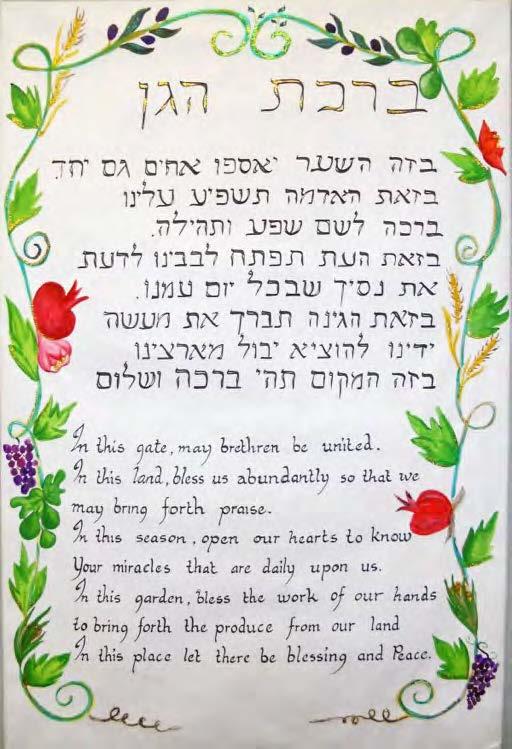 ברכת הגן
בזה השער יאספו אחים גם יחד.
בזאת האדמה תשפיע עלינו
ברכה לשם שפע ותהילה.
בזאת העת תפתח לבבינו לדעת
את נסיך שבכל יום עמנו.
בזאת הגינה תברך את מעשה
ידינו להוציא יבול מארצינו
בזה המקום תהי ברכה ושלום
In this gate, may brethren be united.
In this land, bless us abundantly so that we
may bring forth praise.
In this season, open our hearts to know
Your miracles that are daily upon us.
In this garden, bless the work of our hands
to bring forth the produce from our land
In this place let there be blessing and Peace.